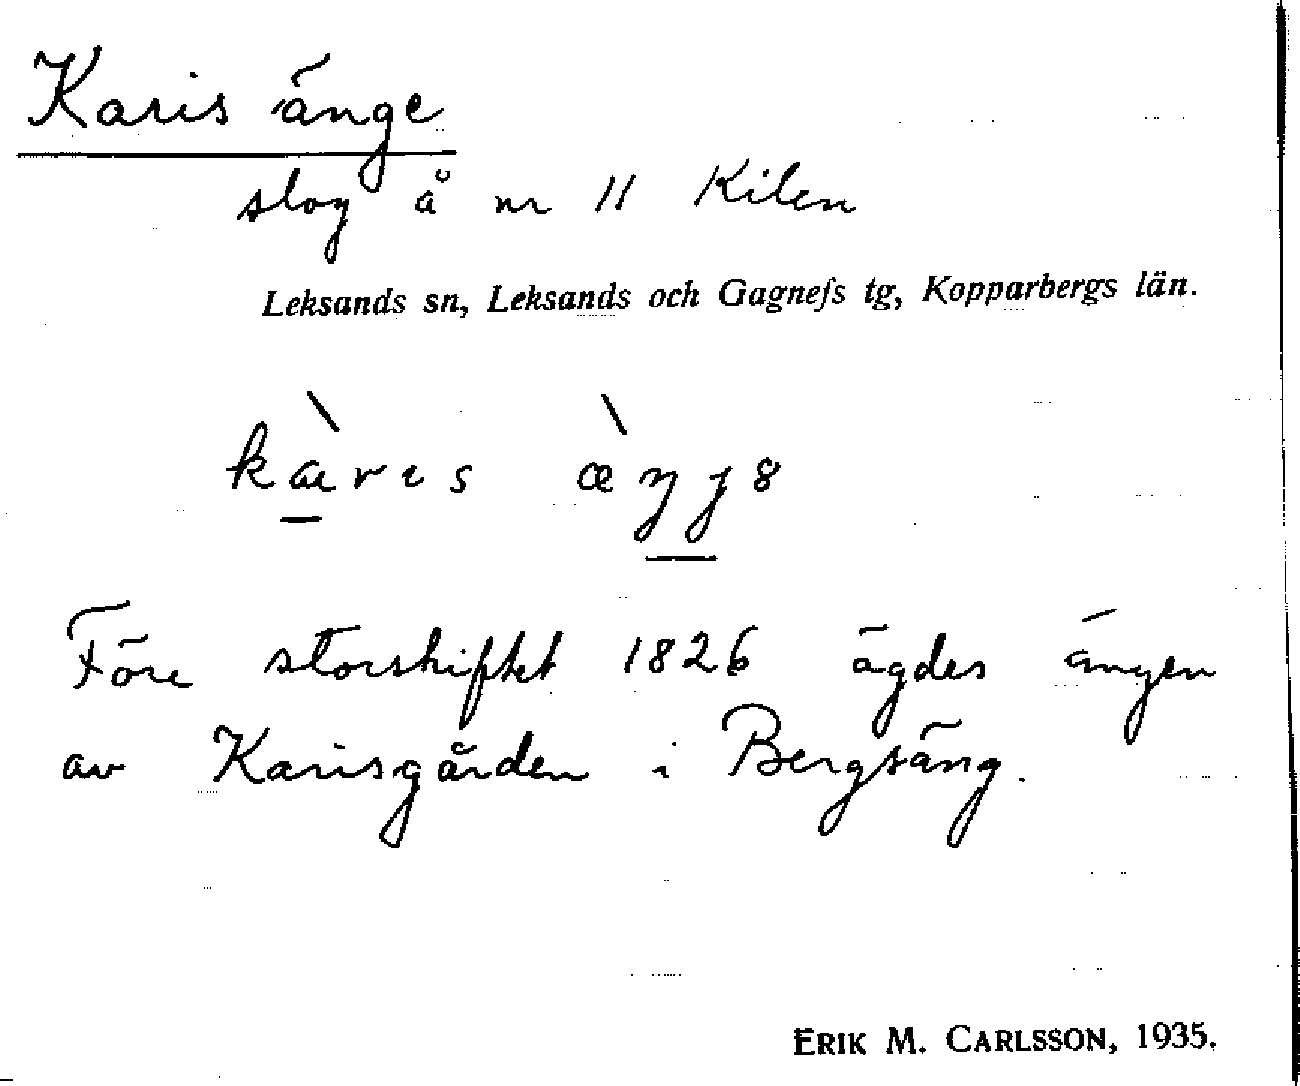 Karis änge
slog å nr 11 Kilen
Leksands sn, Leksands och Gagnefs tg, Kopparbergs län.
Före storskiftet 1826 ägdes ängen
av Karisgården i Bergsäng.
ERIK M. CARLSSON, 1935.